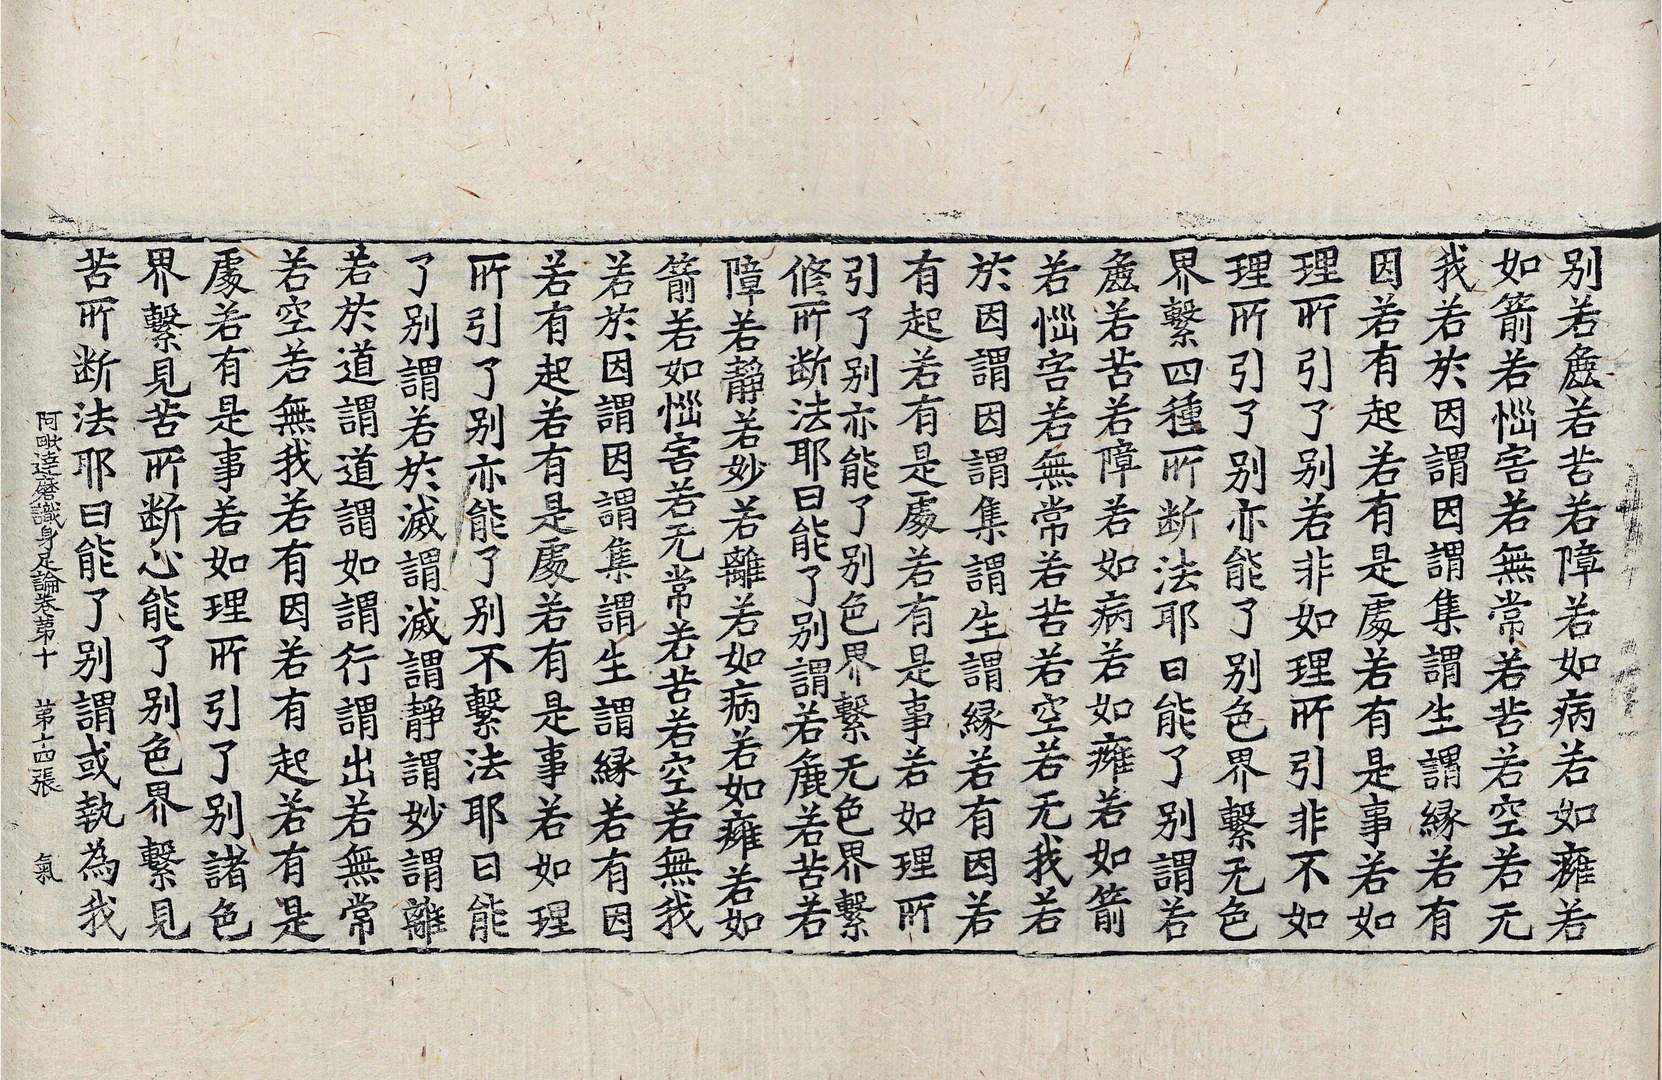 别若麁若苦若障若如病若如癰若
如箭若惱害若無常若苦若空若无
我若於因謂因謂集謂生謂縁若有
因若有起若有是處若有是事若如
理所引了别若非如理所引非不如
理所引了别亦能了别色界繫无色
界繫四種所断法耶曰能了别謂若
麁若苦若障若如病若如癰若如箭
若惱害若無常若苦若空若无我若
於因謂因謂集謂生謂縁若有因若
有起若有是處若有是事若如理所
引了别亦能了别色界繫无色界繫
修所断法耶曰能了别謂若麁若苦若
障若靜若妙若離若如病若如癰若如
箭若如惱害若无常若苦若空若無我
若於因謂因謂集謂生謂縁若有因
若有起若有是處若有是事若如理
所引了别亦能了别不繫法耶曰能
了别謂若於滅謂滅謂靜謂妙謂離
若於道謂道謂如謂行謂出若無常
若空若無我若有因若有起若有是
處若有是事若如理所引了别諸色
界繫見苦所断心能了别色界繫見
苦所断法耶曰能了别謂或執為我
阿毗達磨識身足論卷第十　第十四張　氣